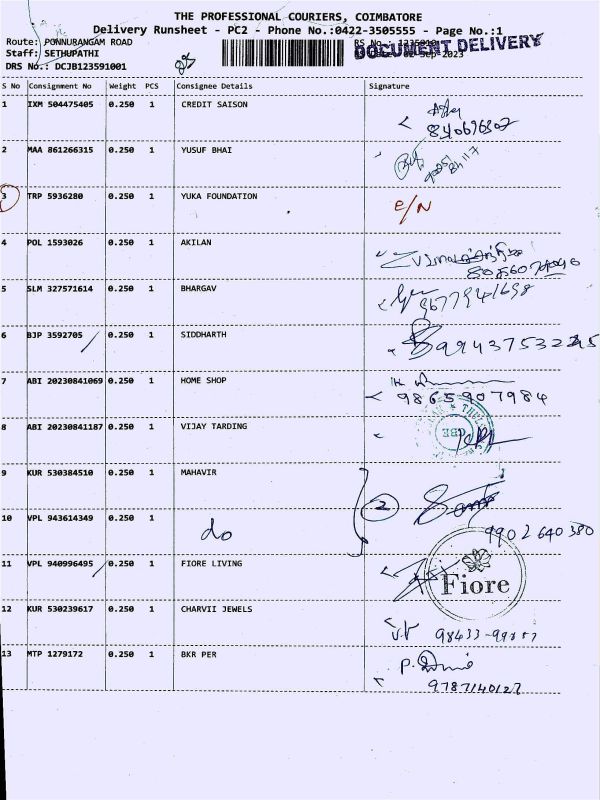 THE PROFESSIONAL COURIERS, COIMBATORE
Delivery Runsheet - PC2 - Phone No.:0422-3505555 - Page No.:1
Route: PONNURANGAM ROAD
Staff: SETHUPATHI
DOCUMENT DELIVERY
DRS No.: DCJB123591001
S No Consignment No Weight PCS Consignee Details Signature
1 IXM 504475405 0.250 1 CREDIT SAISON
2 MAA 861266315 0.250 1 YUSUF BHAI
3 TRP 5936280 0.250 1 YUKA FOUNDATION E/N
4 POL 1593026 0.250 1 AKILAN
5 SLM 327571614 0.250 1 BHARGAV 9677941698
6 BJP 3592705 0.250 1 SIDDHARTH
7 ABI 20230841069 0.250 1 HOME SHOP
9865907984
8 ABI 20230841187 0.250 1 VIJAY TARDING
CBE
9 KUR 530384510 0.250 1 MAHAVIR 2
10 VPL 943614349 0.250 1 do 9902640380
11 VPL 940996495 0.250 1 FIORE LIVING Fiore
12 KUR 530239617 0.250 1 CHARVII JEWELS
13 MTP 1279172 0.250 1 BKR PER
9787140127